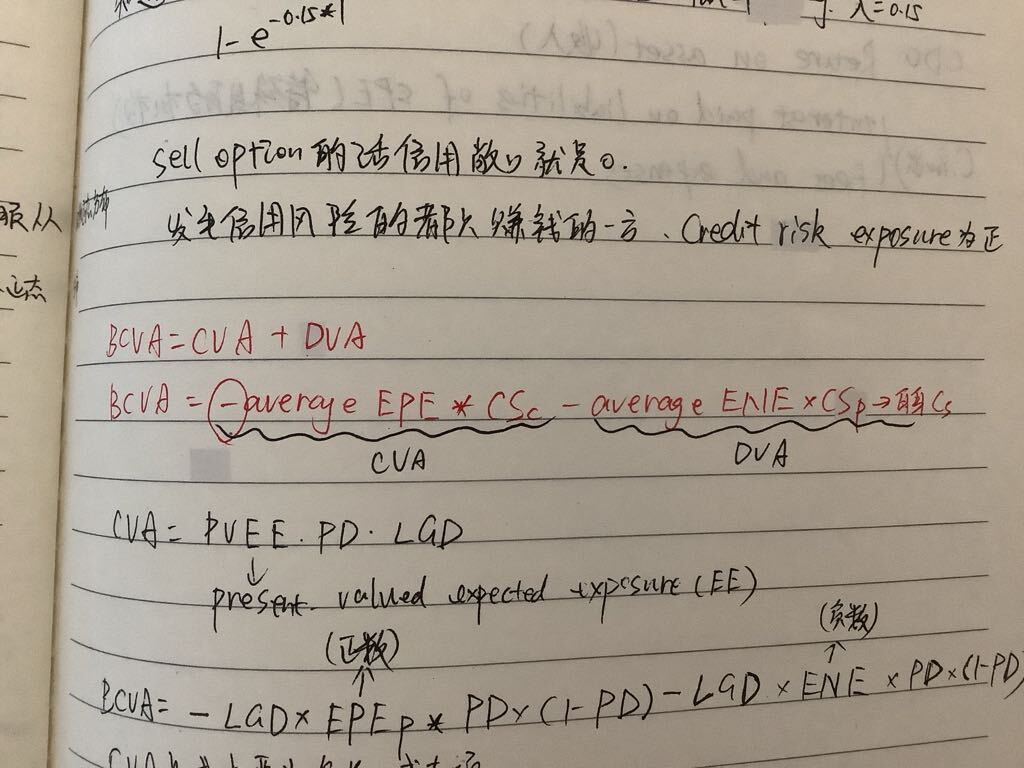 λ=0.15
1-e^{-0.15*1}
sell option 的话信用敞口就是0.
发生信用风险的都是赚钱的一方、Credit risk exposure为正
服从
正态
BCVA=CVA + DVA
BCVA = -average EPE * CSc - average ENE × CSp→自身Cs
CVA DVA
CVA= PVEE. PD. LGD
↓
present valued expected exposure (EE)
(正数) (负数)
↑ ↑
BCVA= - LGD × EPEp * PD×(1-PD) - LGD × ENE × PD×(1-PD)